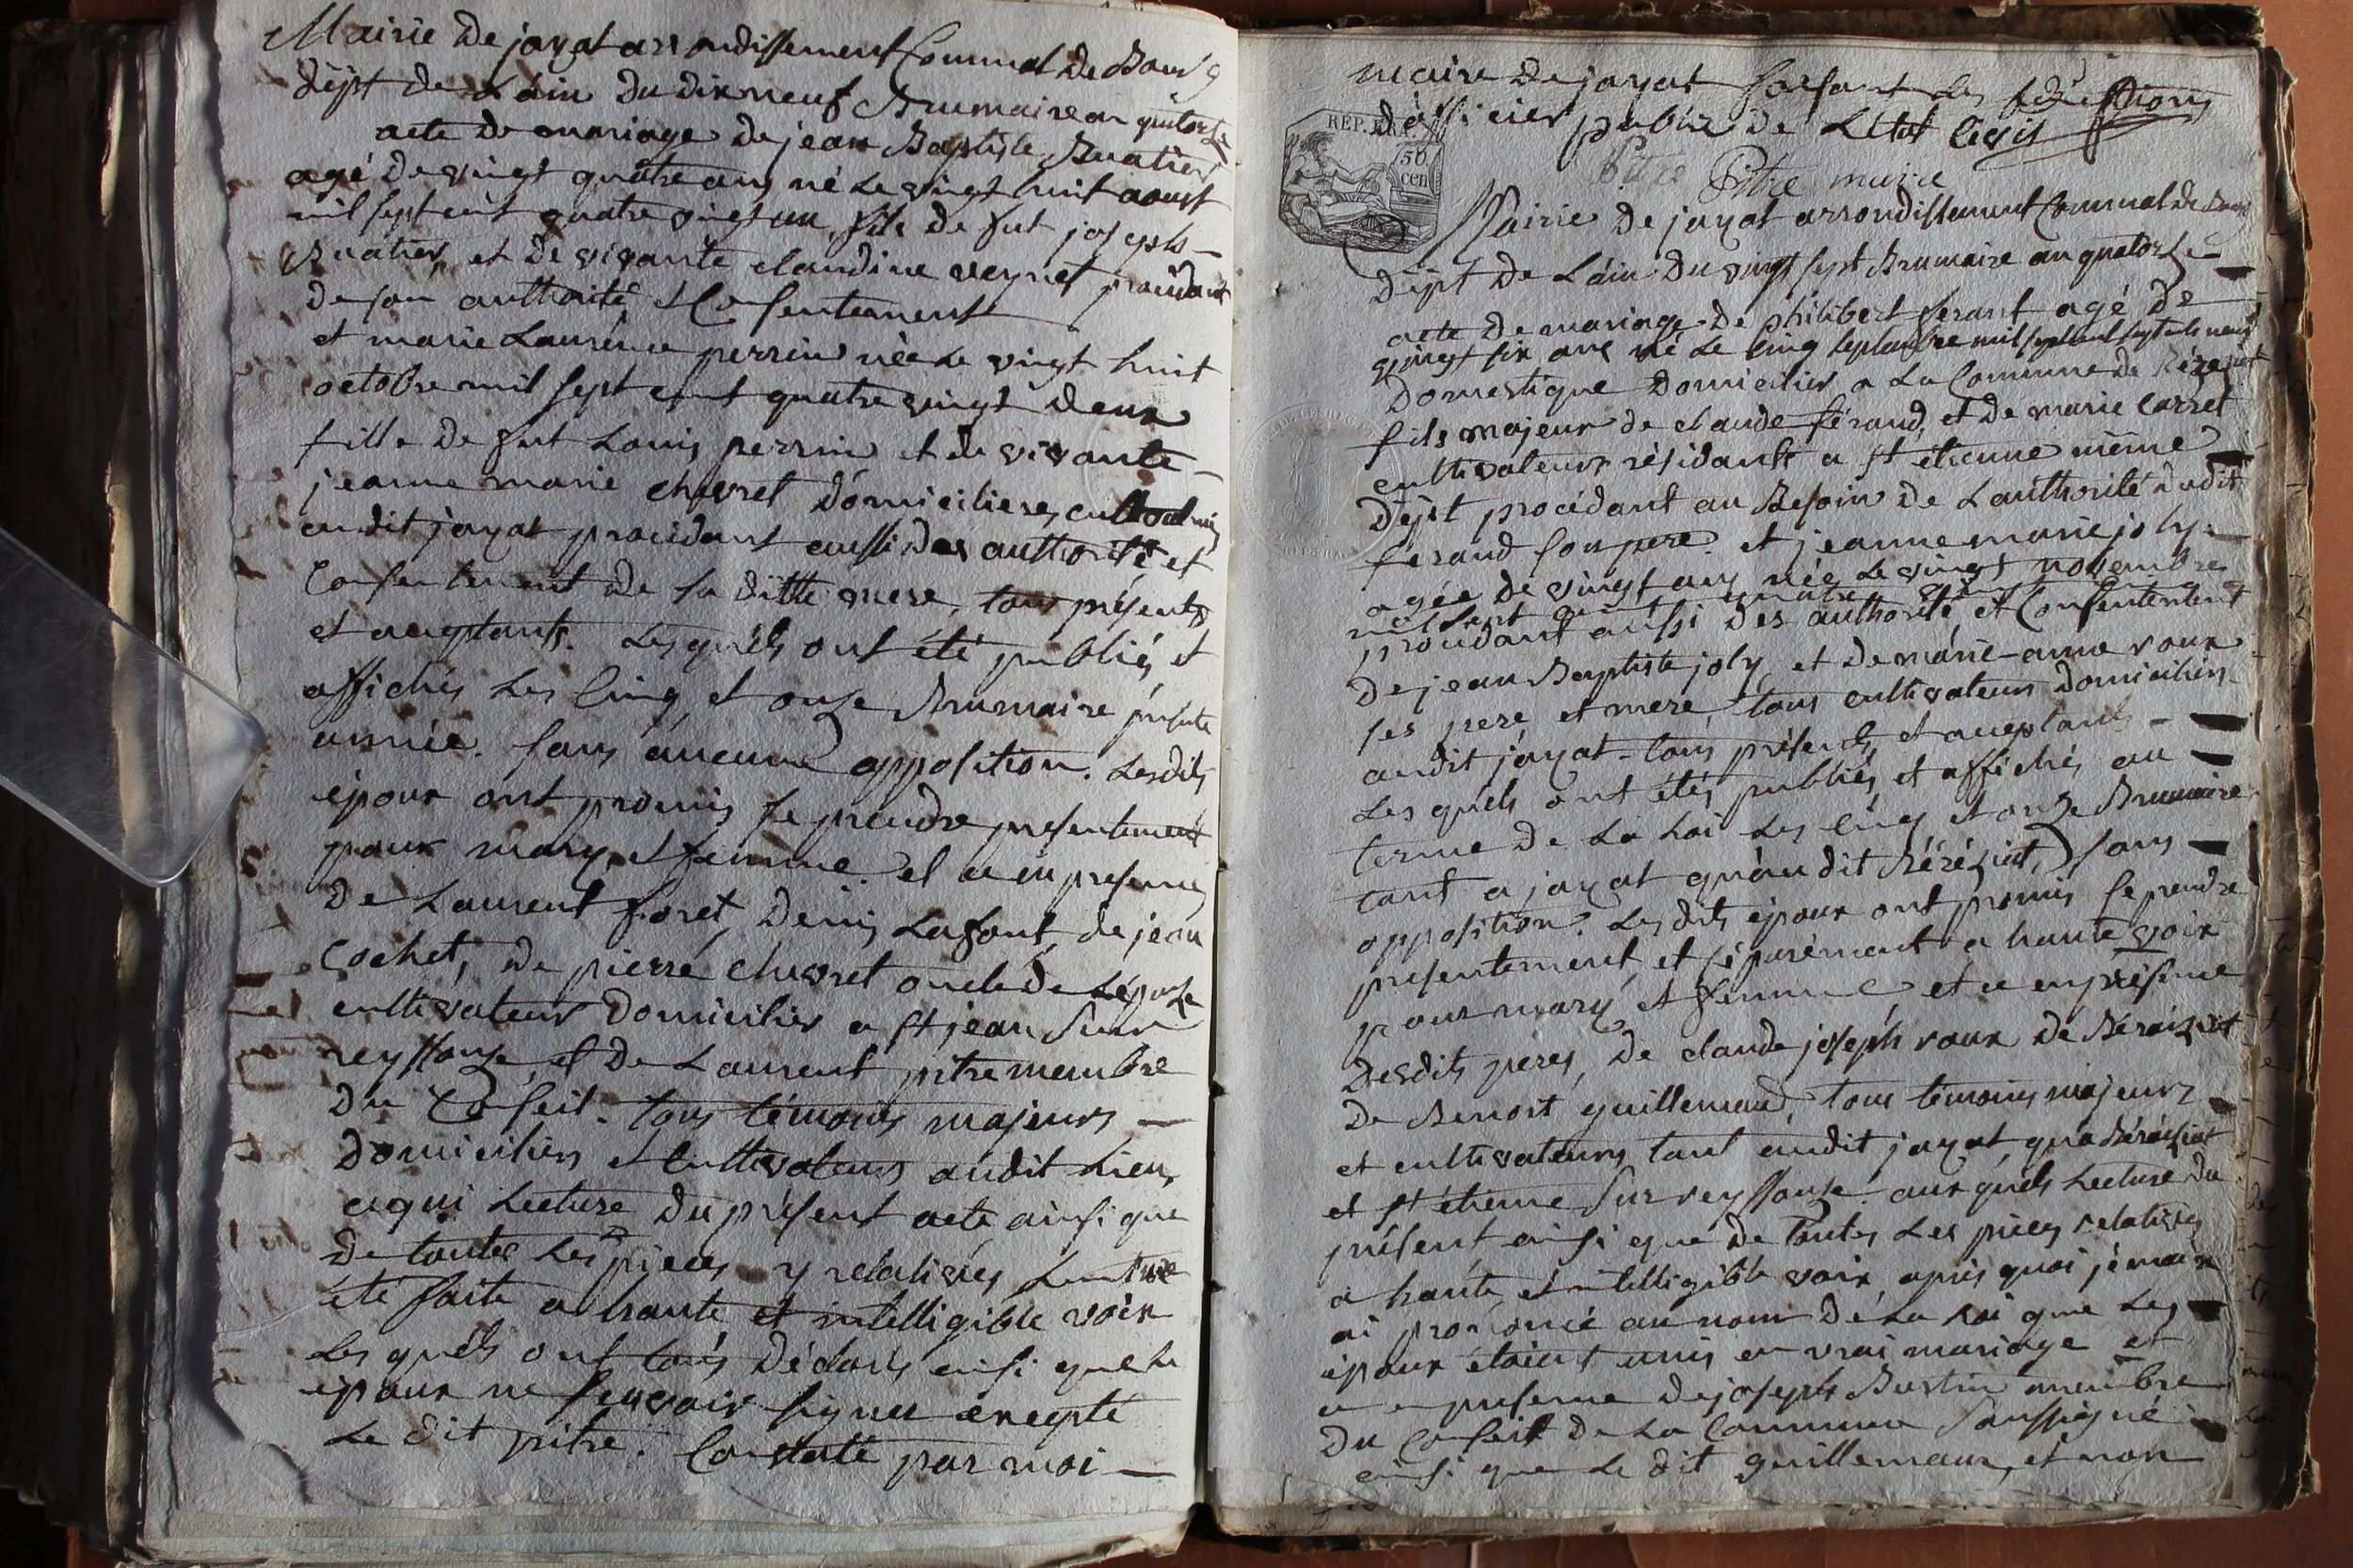 Mairie de jayat arrondissement Communal de Bourg
dépt de Láin du dix neuf Brumaire an quatorze
acte de mariage de jean Baptiste Buatier
agé de vingt quatre ans né Le vingt huit aoust
mil sept cent quatre vingt un, fils de fut joseph
Buatier, et de vivante claudine veyret procédant
de son authorité et Consentement
et marie Laurence perrin née Le vingt huit
octobre mil sept cent quatre vingt deux
fille de fut Louis perrin et de vivante
jeanne marie chevret domiciliers
audit jayat procédant aussi des authorité et
Consentement de sa ditte mere, tous présents
et acceptants. Les quels ont été publiés et
affichés Les Cinq et onze Brumaire présente
année. sans aucune opposition. Lesdits
épour ont promis se prendre presentement
pour mary et femme. et ce en presence
de Laurent foret, denis Lafont, de jean
Cochet, de pierre chevret oncle de Lépouse
cultivateur domicilier a st jean sur
reyssouze, et de Laurent pitre membre
du Conseil. tous témoins majeurs
domiciliers et Cultivateurs audit Lieu,
a qui Lecture du présent acte ainsi que
de toutes Les pieces y relatives
été faite a haute et intelligible voix
Les quels ont tous déclarés ainsi que Le
épour ne scavoir signer excepté
Le dit pitre. Constaté par moi
maire de jayat faisant Les fonctions
dófficier public de Létat Civil
REP. FRA.
50
cen
Pitre maire
Mairie de jayat arrondissement Communal de Bourg
dépt de Láin du vingt sept Brumaire an quatorze
acte de mariage de philibert ferant agé de
vingt six ans né Le Cinq septembre mil sept cent septente neuf
domestique domicilier a La Commune de
fils majeur de claude férand, et de marie carret
cultivateurs résidants a st étienne même
dépt procédant au Besoin de Lauthorité dudit
ferand son pere. et jeanne marie joly
agée de vingt ans née Le vingt novembre
mil sept cent quatre
procédant aussi des authorité et Consentement
de jean Baptiste joly, et de marie anne roux
ses pere et mere, tous cultivateurs domiciliers
audit jayat tous présents et acceptants
Les quels ont étés publiés, et affichés au
terme de La Loi Les Cinq et onze Brumaire
tant a jayat qu'audit Béréziat, sans
opposition. Les dits épour ont promis se prendre
presentement, et séparément a haute voix
pour mary et femme et ce en présence
desdits peres, de claude joseph roux de Béreiziat
de Benoit guillemaud, tous témoins majeurs
et cultivateurs tant audit jayat, qu'a Béréiziat
et st étienne sur reyssouze. aux quels Lecture du
présent ainsi que de toutes Les pieces relatives
a haute, et intelligible voix, après quoi je maire
ai prononcé au nom de La Loi que Les
épour étaient unis en vrai mariage et
ce en presence de joseph Burtin membre
du Conseil de La Commune soussigné
ainsi que Le dit guillemaux, et non